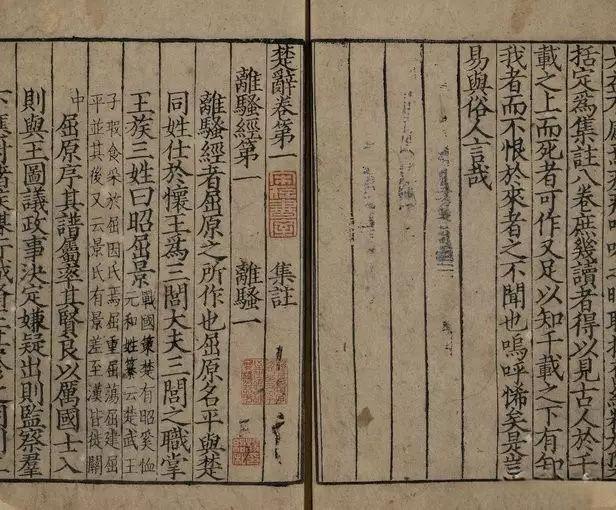 括定為集註八卷庶幾讀者得以見古人於千
載之上而死者可作又足以知千載之下有知
我者而不恨於來者之不聞也嗚呼悕矣是豈
易與俗人言哉
楚辭卷第一 集註
離騷經第一 離騷一
離騷經者屈原之所作也屈原名平與楚
同姓仕於懷王為三閭大夫三閭之職掌
王族三姓曰昭屈景 戰國策楚有昭奚恤
元和姓纂云楚武王
子瑕食采於屈因氏焉屈重屈蕩屈建屈
平並其後又云景氏有景差至漢皆徙關
中 屈原序其譜屬率其賢良以厲國士入
則與王圖議政事決定嫌疑出則監察羣